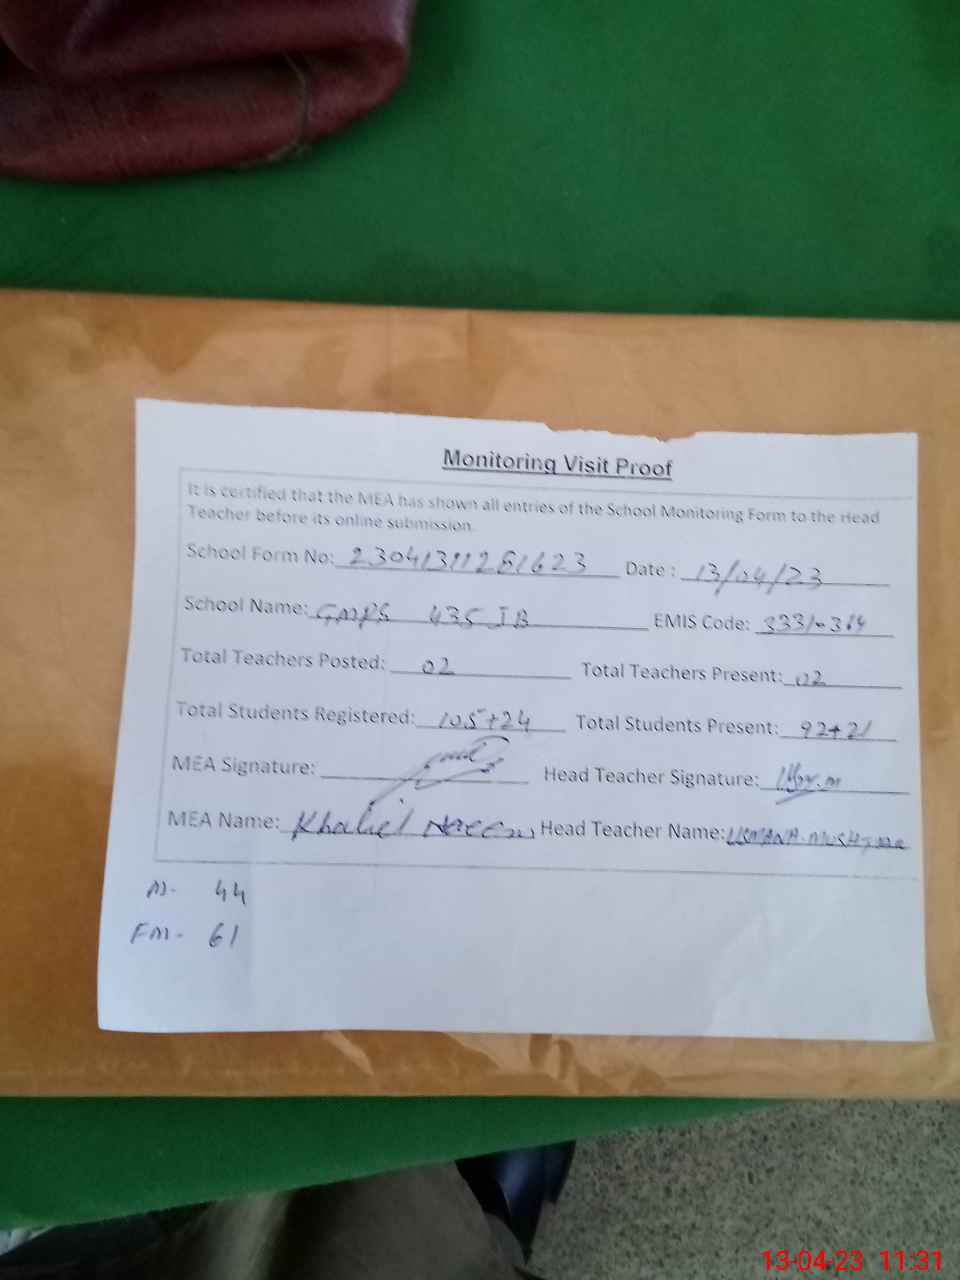 Monitoring Visit Proof
It is certified that the MEA has shown all entries of the School Monitoring Form to the Head
Teacher before its online submission.
School Form No: 23041311281623 Date : 13/04/23
School Name: GMPS 435 JB EMIS Code:
Total Teachers Posted: 02 Total Teachers Present: 02
Total Students Registered: 105+24 Total Students Present: 92+21
MEA Signature: Head Teacher Signature:
MEA Name: Khaliel Naeem Head Teacher Name:
M- 44
FM- 61
13-04-23 11:31